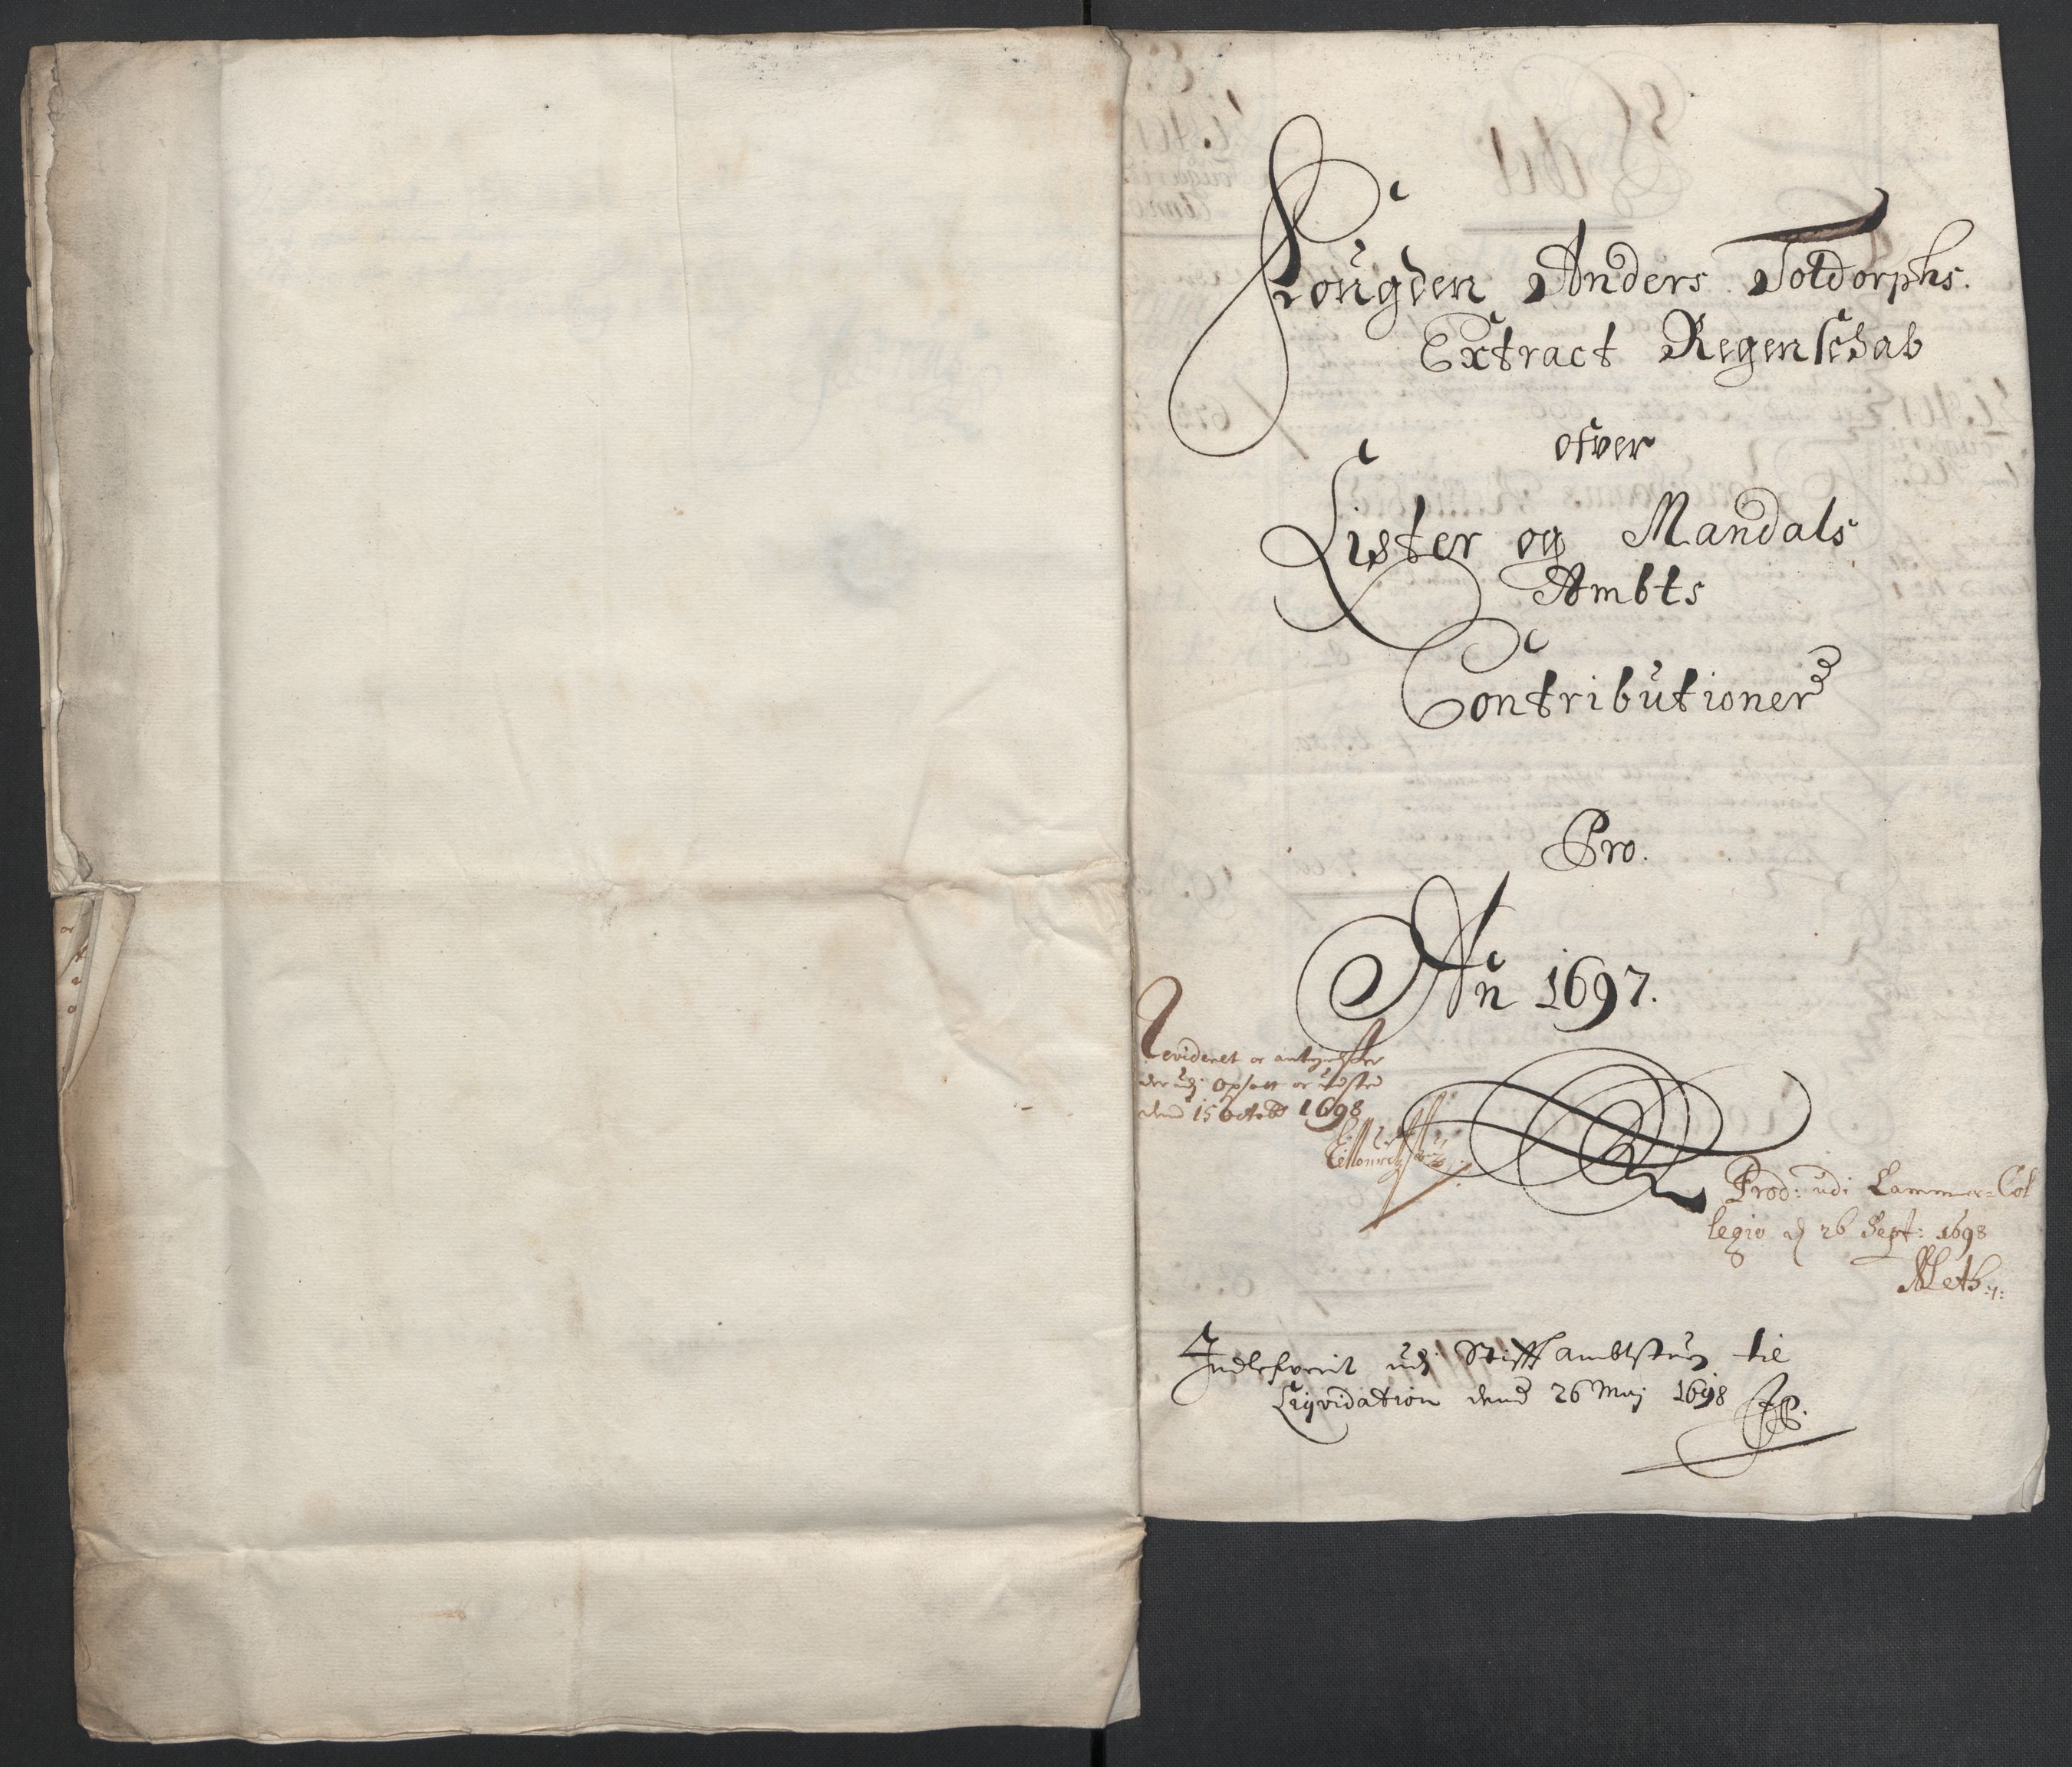 Fougden Anders Toldorphs.
Extract Regenschab
ofver
Lister og Mandals
Ambts
Contributioner
Pro.
An 1697.
Revideret oc
der udj Opsatt oc
dend 15 Octob 1698
Prod: udi Cammer=Col
legio d 26 Sept: 1698
Meth:
Indlefverit udj Stifftambtstuen til
Liqvidation dend 26 Maj 1698